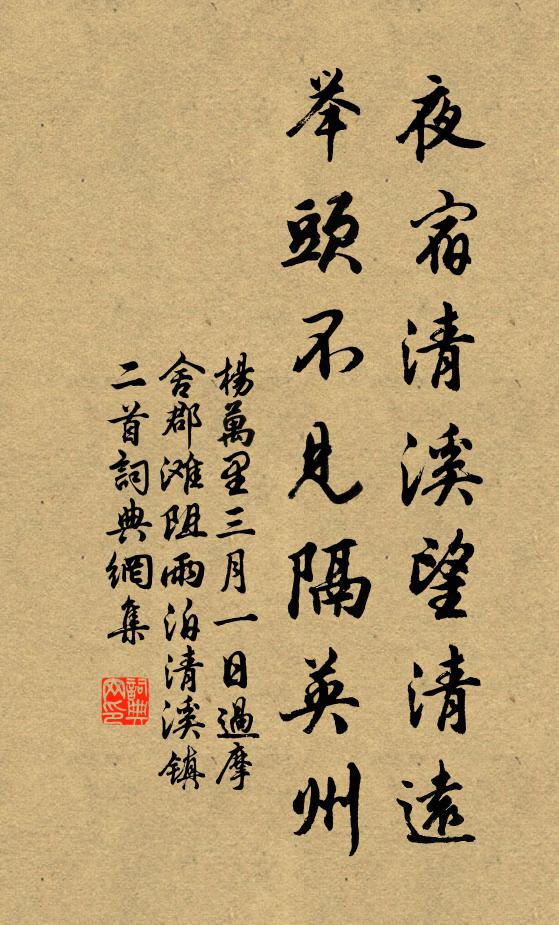 夜宿清溪望清遠
举頭不見隔英州
楊萬里三月一日過摩
舍郡滩阻雨泊清溪镇
二首詞典網集
詞典
网印